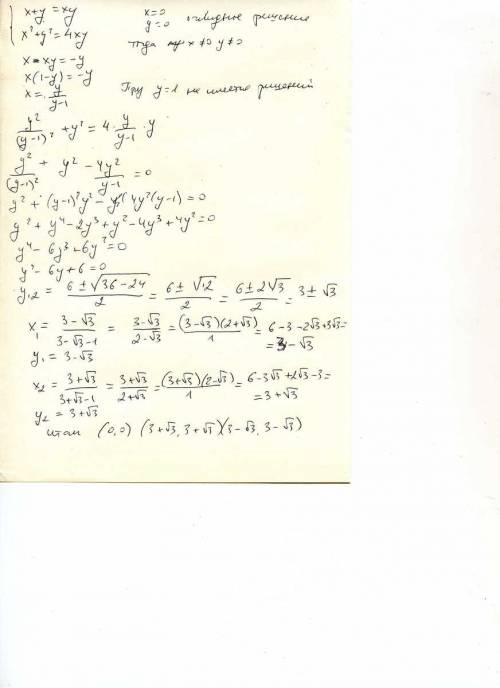 x+y = xy
x² + y² = 4xy
x=0
y=0 очевидные решения
тогда x≠0 y≠0
x - xy = -y
x(1-y) = -y
x = y/(y-1)
При y=1 не имеет решений
y²/(y-1)² + y² = 4 · y/(y-1) · y
y²/(y-1)² + y² - 4y²/(y-1) = 0
y² + (y-1)²y² - 4y²(y-1) = 0
y² + y⁴ - 2y³ + y² - 4y³ + 4y² = 0
y⁴ - 6y³ + 6y² = 0
y² - 6y + 6 = 0
y₁,₂ = (6 ± √(36-24))/2 = (6 ± √12)/2 = (6 ± 2√3)/2 = 3 ± √3
x₁ = (3-√3)/(3-√3-1) = (3-√3)/(2-√3) = (3-√3)(2+√3)/1 = 6-3-2√3+3√3 =
= 3-√3
y₁ = 3-√3
x₂ = (3+√3)/(3+√3-1) = (3+√3)/(2+√3) = (3+√3)(2-√3)/1 = 6-3√3+2√3-3 =
= 3+√3
y₂ = 3+√3
Итак (0,0) (3+√3, 3+√3) (3-√3, 3-√3)